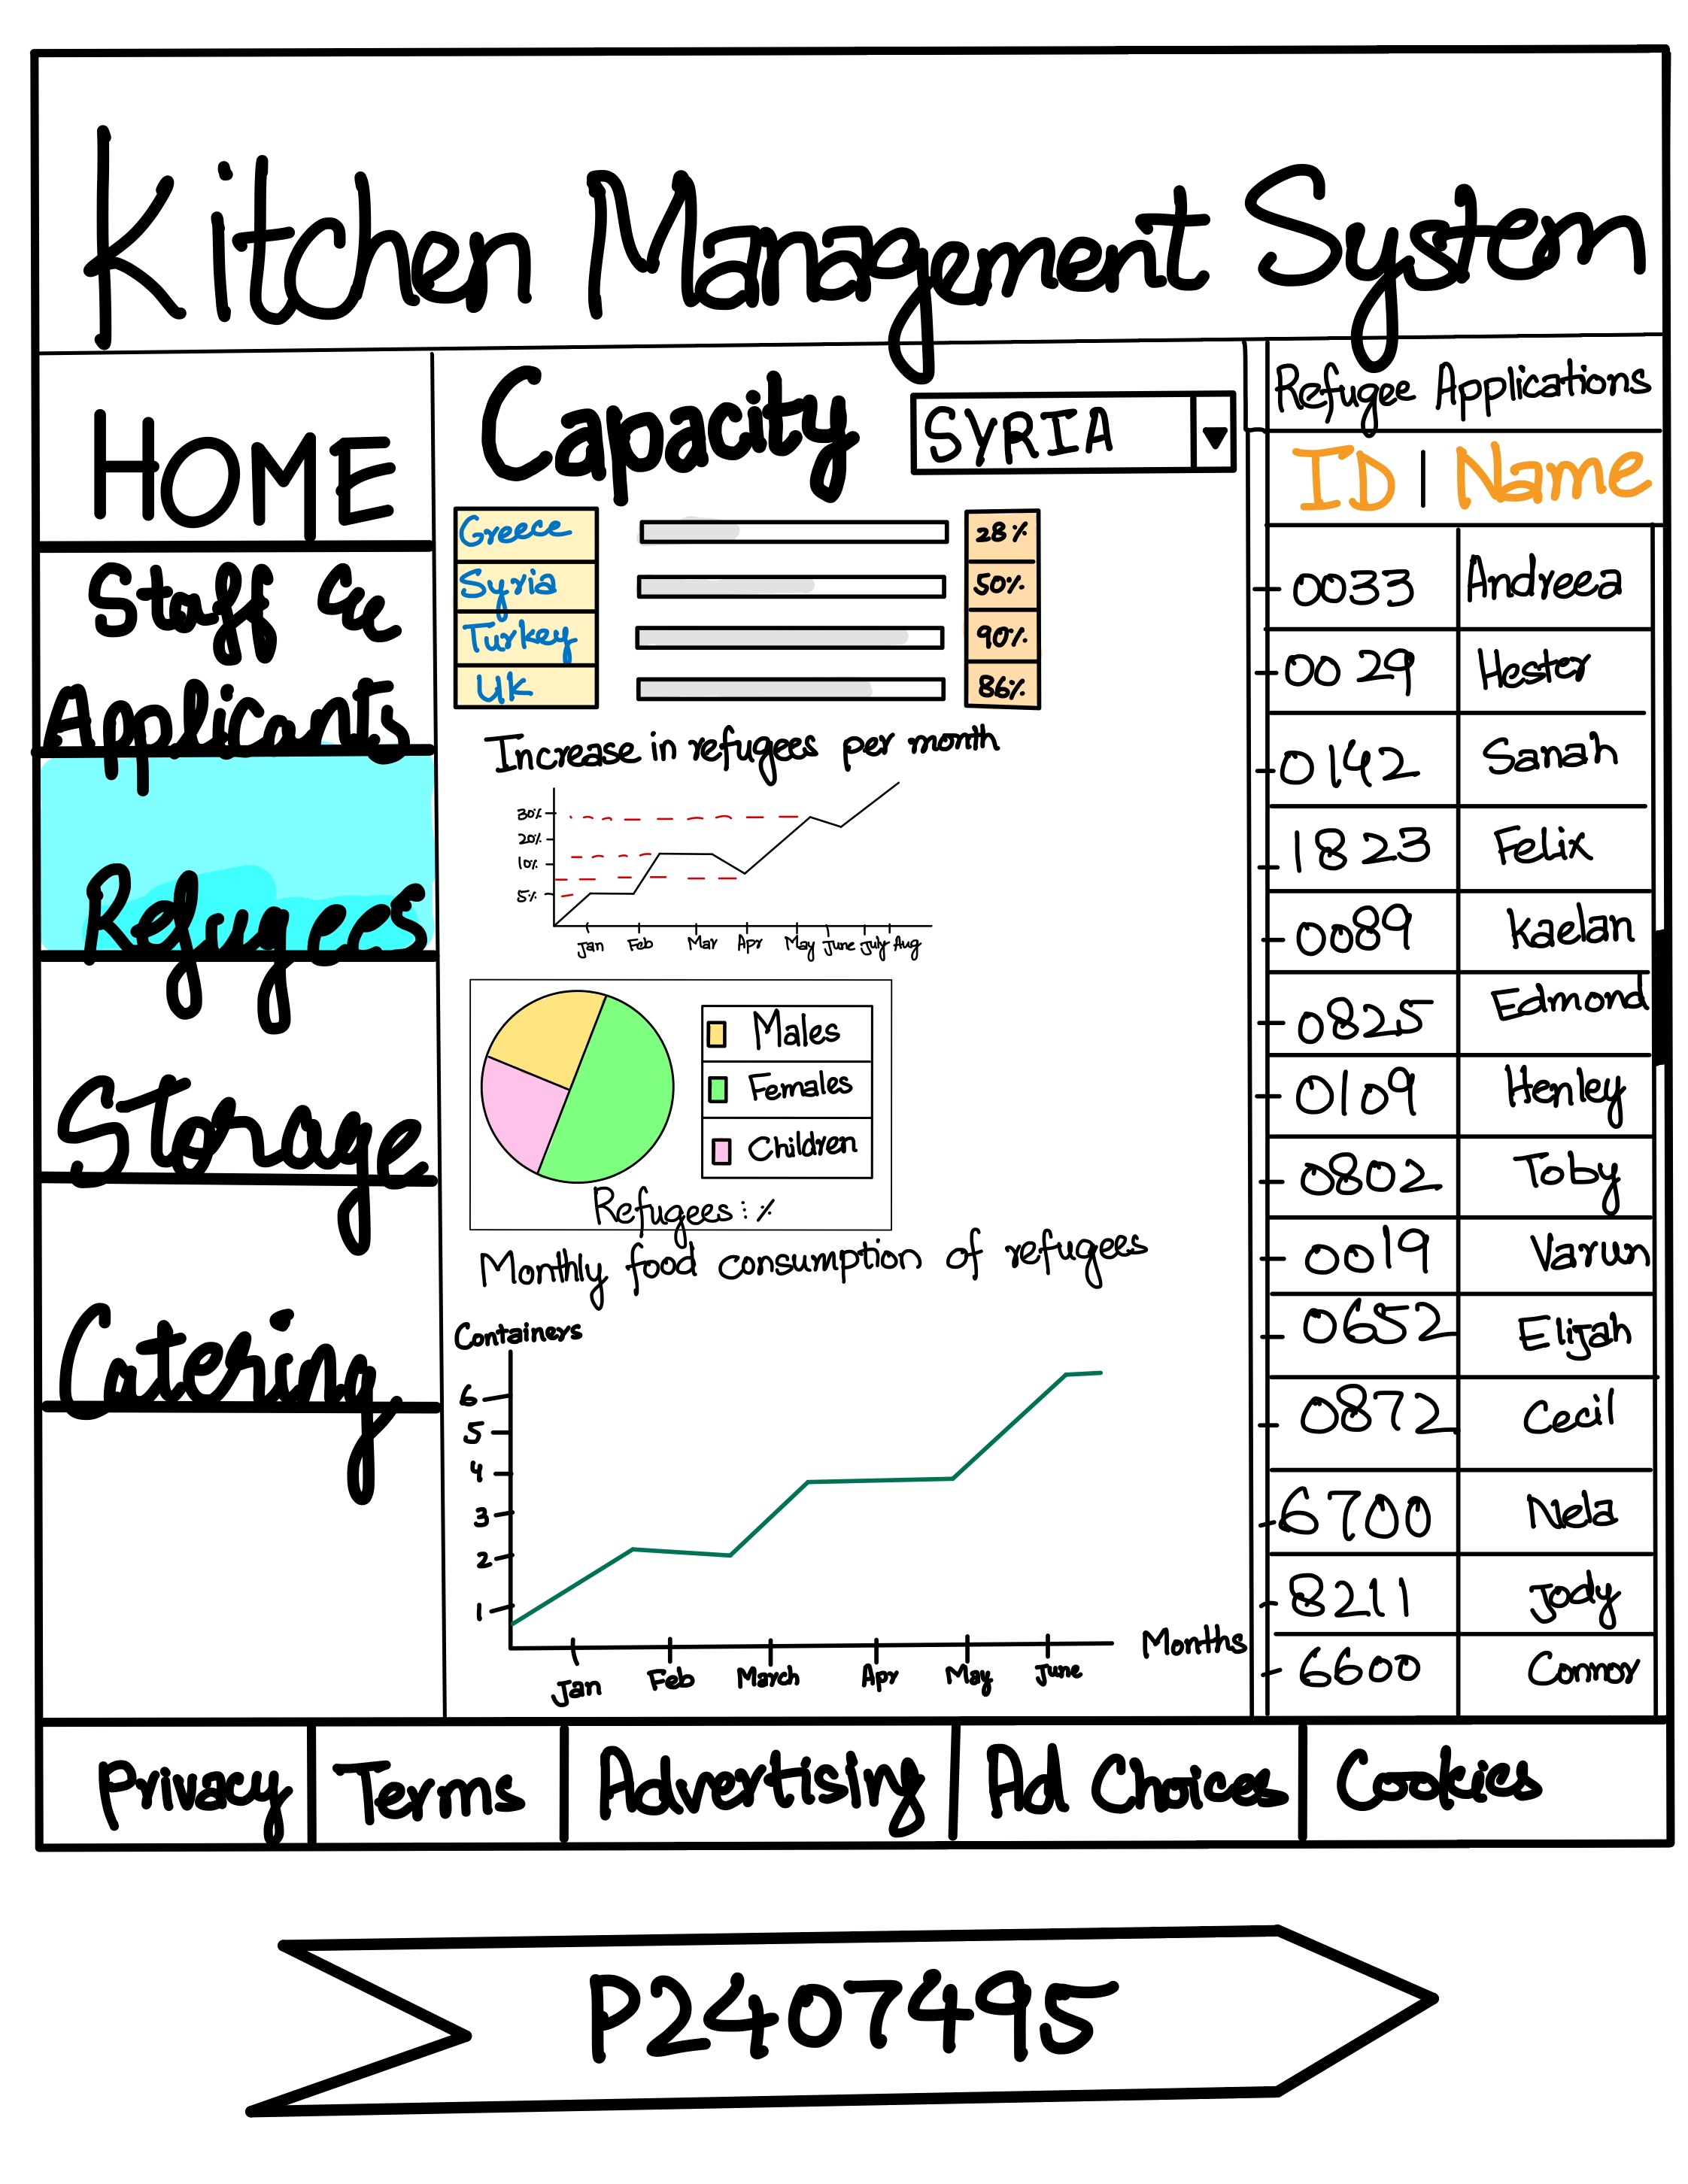 Kitchen Management System
HOME
Staff &
Applicants
Refugees
Storage
Catering
Capacity
SYRIA
Greece 28%
Syria 50%
Turkey 90%
UK 86%
Increase in refugees per month
30%
20%
10%
5%
Jan Feb Mar Apr May June July Aug
Males
Females
Children
Refugees : %
Monthly food consumption of refugees
Containers
6
5
4
3
2
1
Months
Jan Feb March Apr May June
Refugee Applications
ID | Name
0033 Andreea
0029 Hester
0142 Sanah
1823 Felix
0089 Kaelan
0825 Edmond
0109 Henley
0802 Toby
0019 Varun
0652 Elijah
0872 Cecil
6700 Nela
8211 Jody
6600 Connor
Privacy Terms Advertising Ad Choices Cookies
P2407495